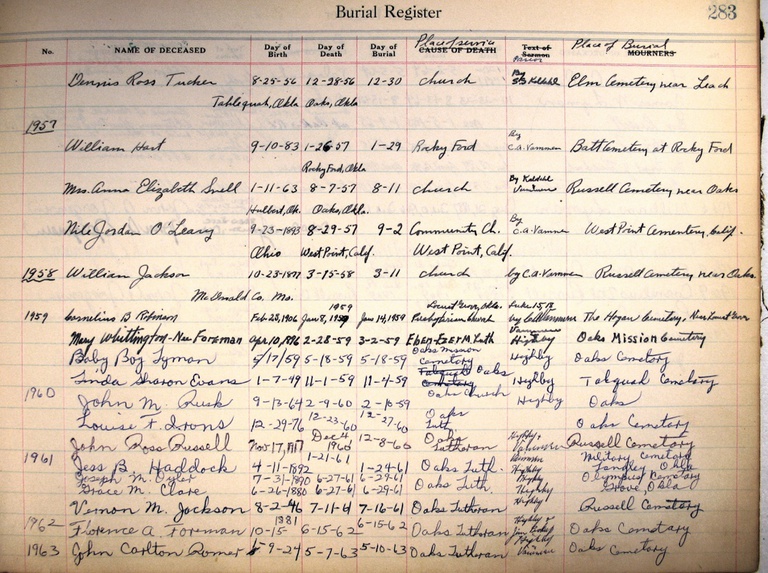 Burial Register 283
No. NAME OF DECEASED Day of Birth Day of Death Day of Burial Place of service CAUSE OF DEATH Text of Sermon Pastor Place of Burial MOURNERS
Dennis Ross Tucker 8-25-56 12-28-56 12-30 church By Elm Cemetery near Leach
Tahlequah, Okla Oaks, Okla.
1957
William Hart 9-10-83 1-26-57 1-29 Rocky Ford By C.A. Vammen Batt Cemetery at Rocky Ford
Rocky Ford, Okla
Mrs. Anna Elizabeth Snell 1-11-63 8-7-57 8-11 church By Russell Cemetery near Oaks
Hulbert, Ok. Oaks, Okla.
Nile Jordan O'Leary 9-23-1893 8-29-57 9-2 Community Ch. By C.A. Vammen West Point Cementery, Calif.
Ohio West Point, Calif. West Point, Calif.
1958 William Jackson 10-23-1877 3-15-58 3-11 church by C.A. Vammen Russell Cemetery near Oaks.
McDonald Co. Mo.
1959 Cornelius B Robinson Feb 28, 1906 Jan 8, 1959 Jan 14, 1959 Locust Grove, Okla. Presbyterian Church Luke 15, by C A Vammen The Hogan Cemetery, Near Locust Grove
Mary Whittington-Nee Foreman Apr 10, 1896 2-28-59 3-2-59 Eben-Ezer M. Luth Vammen Highby Oaks Mission Cemetery
Baby Boy Lyman 5/17/59 5-18-59 5-18-59 Oaks Mission Cemetery Highby Oaks Cemetery
Linda Sharon Evans 1-7-49 11-1-59 11-4-59 Oaks Church Highby Cemetery
1960
John M. Rusk 9-13-64 2-9-60 2-10-59 Oaks Highby Oaks
Louise F. Irons 12-29-76 12-23-60 12-27-60 Luth Oaks Cemetery
John Ross Russell Nov 17, 1917 Dec 4 1960 12-8-60 Oaks Lutheran Highby & Vammen Russell Cemetery
1961
Jess B. Haddock 4-11-1892 1-21-61 1-24-61 Oaks Luth. Highby Military Cemetery Okla
Joseph M. 7-31-1890 6-27-61 6-29-61 Highby Cemetery
Grace M. Clare 6-26-1880 6-27-61 6-29-61 Oaks Luth. Highby Grove, Okla
Vernon M. Jackson 8-2-46 7-11-61 7-16-61 Oaks Lutheran Highby Russell Cemetery
1962 Florence A. Foreman 10-15-1881 6-15-62 6-15-62 Oaks Lutheran Highby & Oaks Cemetary
1963 John Carlton Romer 9-24 5-7-63 5-10-63 Oaks Lutheran Highby Vammen Oaks Cemetery